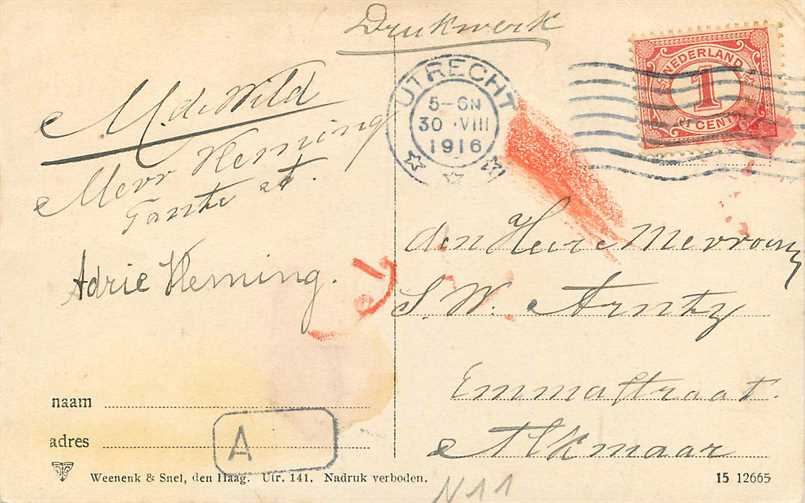 Drukwerk
NEDERLAND
1
CENT
UTRECHT
5-6N
30 VIII
1916
M. de Wild
Mevr Heming
Tante et.
Adrie Heming.
den Heer en Mevrouw
S. W. Arntz
Emmastraat.
Alkmaar
naam
adres
A
Weenenk & Snel, den Haag. Uitr. 141. Nadruk verboden.
15 12665
N11